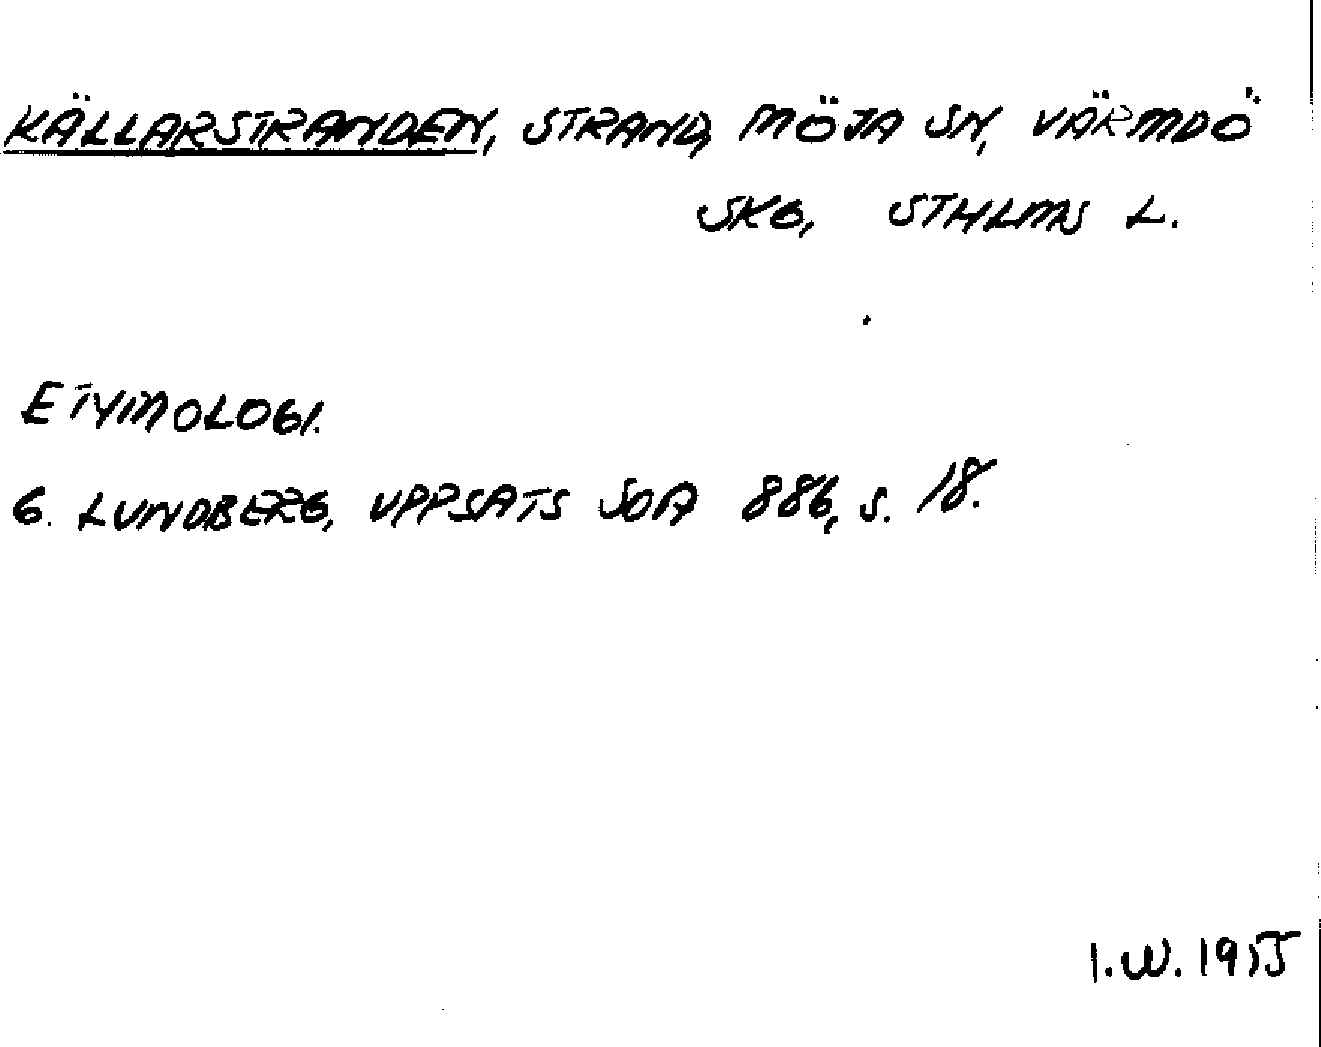 KÄLLARSTRANDEN, STRAND, MÖJA SN, VÄRMDÖ
SKG, STHLMS L.
ETYMOLOGI.
G. LUNDBERG, UPPSATS SOA 886, S. 18.
I.W. 1955